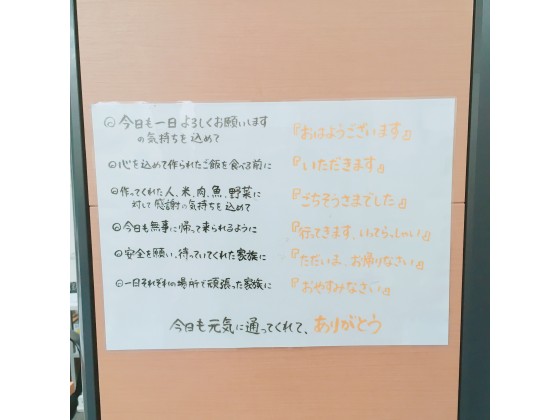 ◎今日も一日よろしくお願いします
の気持ちを込めて 『おはようございます』
◎心を込めて作られたご飯を食べる前に 『いただきます』
◎作ってくれた人、米、肉、魚、野菜に
対して感謝の気持ちを込めて 『ごちそうさまでした』
◎今日も無事に帰って来られるように 『行ってきます、いってらっしゃい』
◎安全を願い、待っていてくれた家族に 『ただいま、お帰りなさい』
◎一日それぞれの場所で頑張った家族に 『おやすみなさい』
今日も元気に通ってくれて、ありがとう